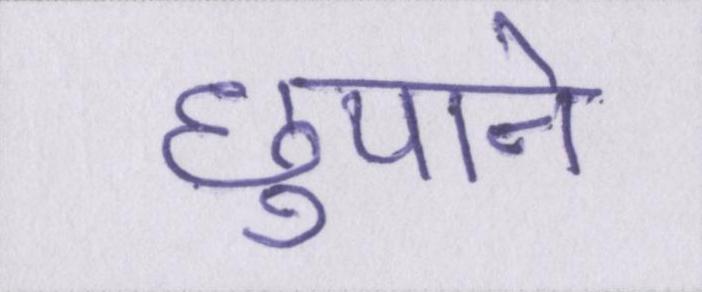 छुपाने